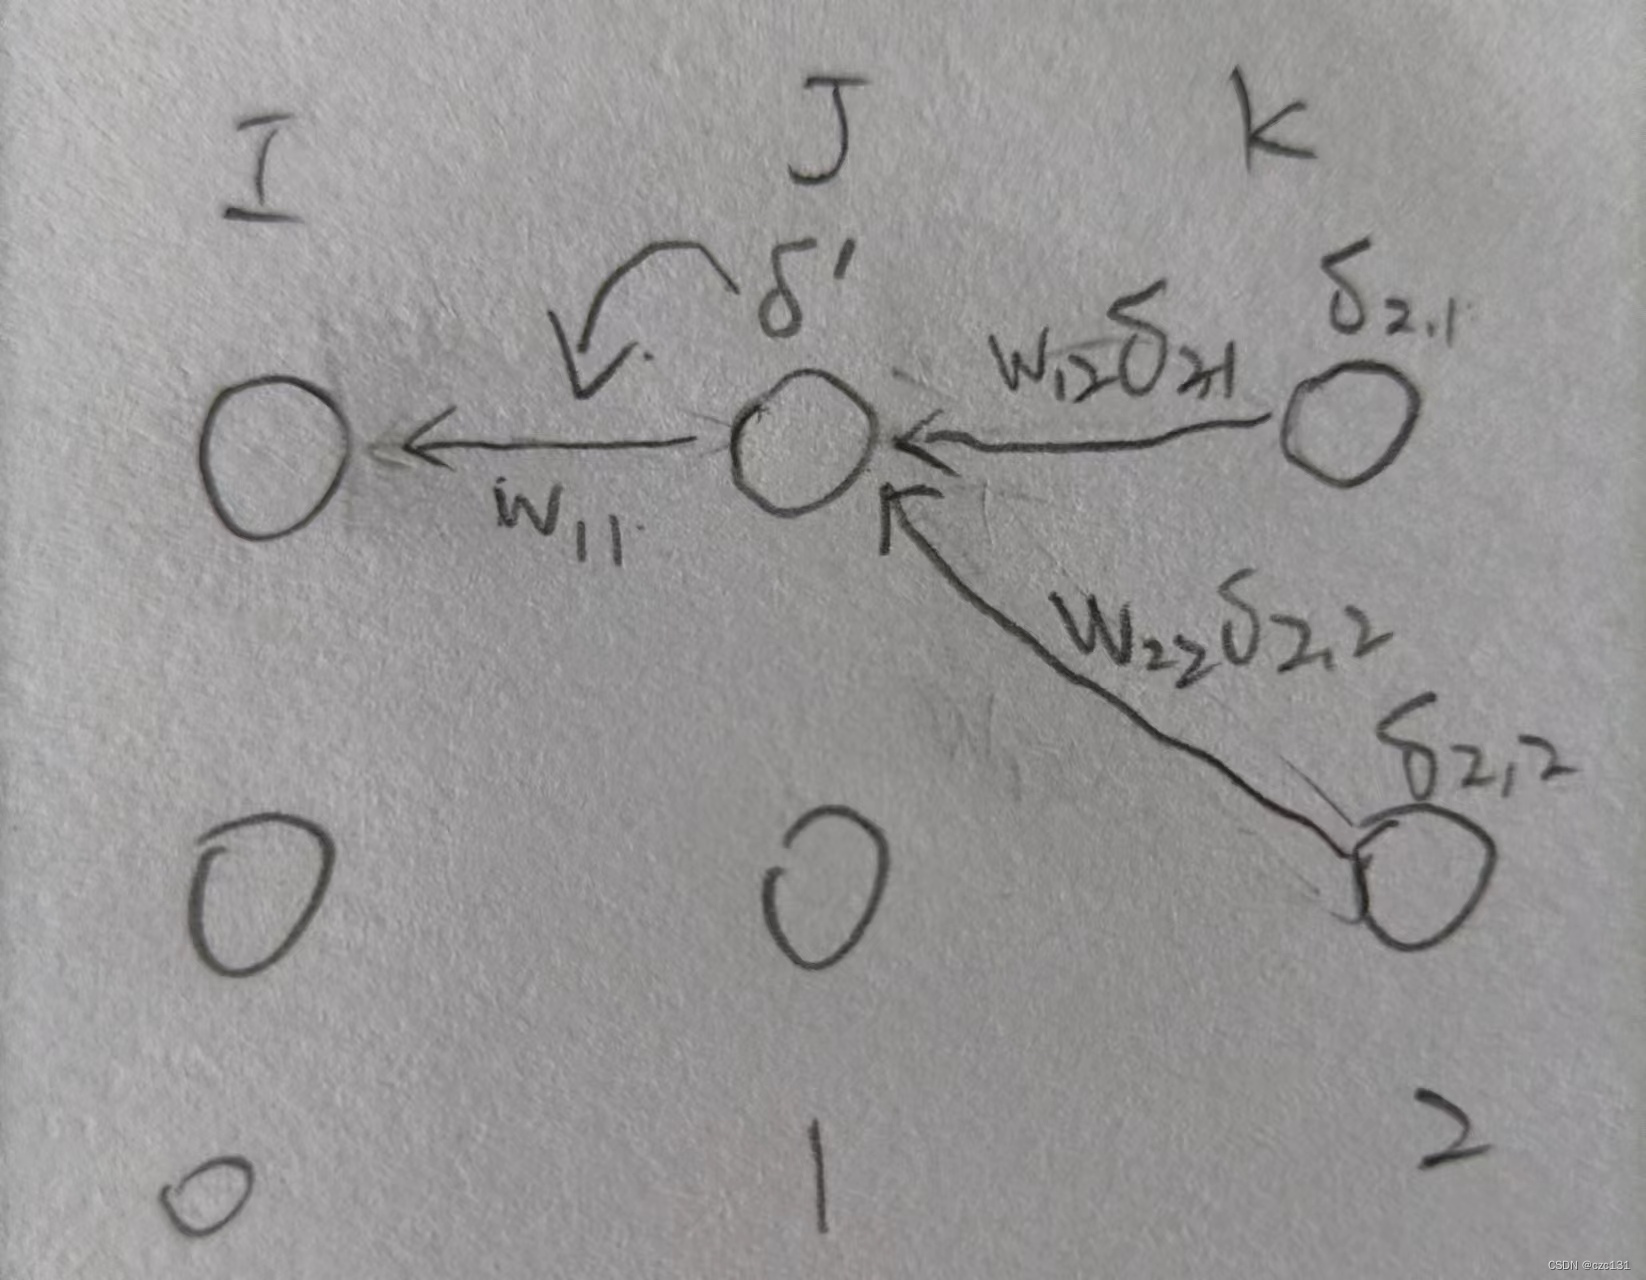 I J K
δ' δ2,1
w12δ2,1
w11
w22δ2,2
δ2,2
0 1 2
CSDN @czc131